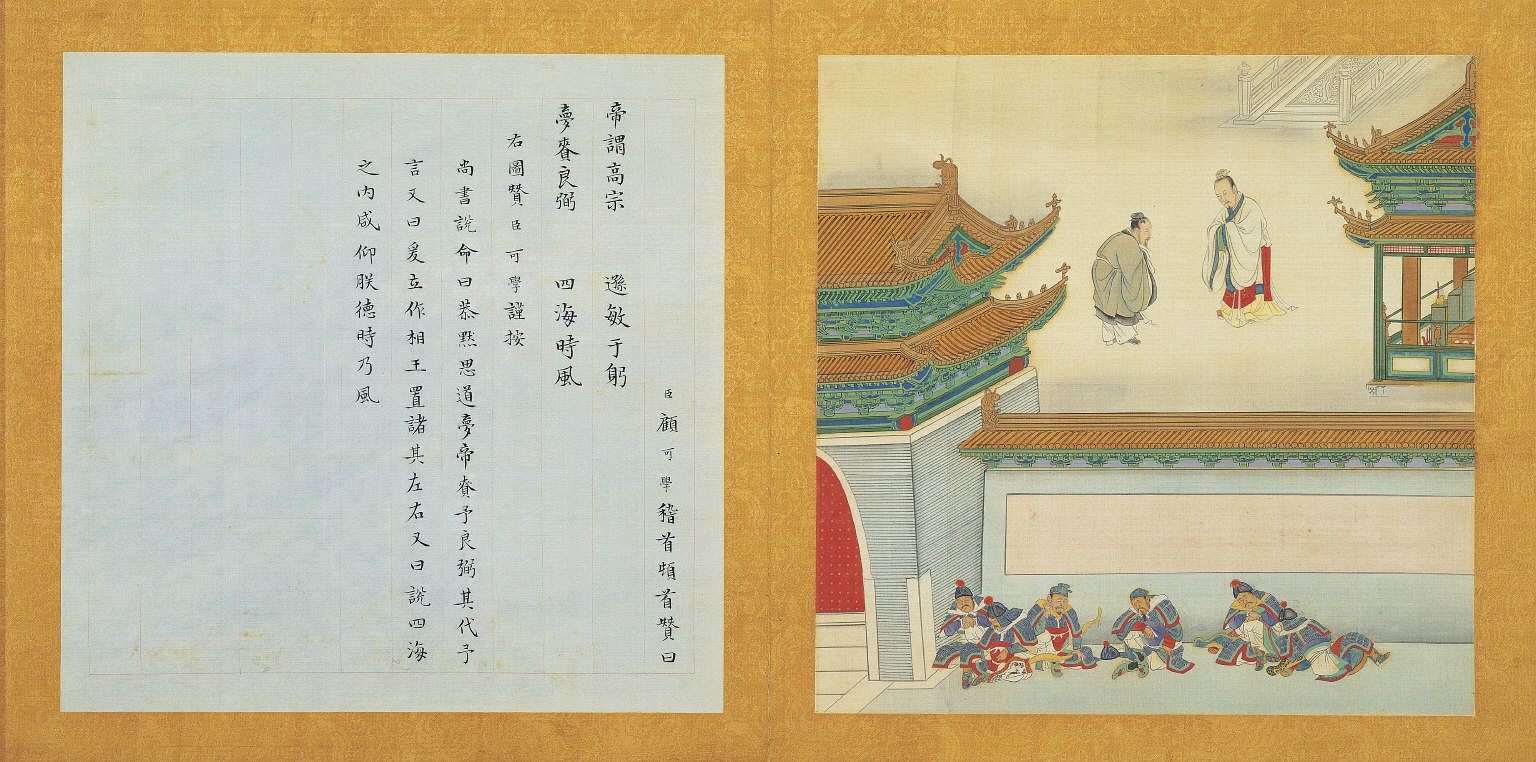 臣顧可學稽首頓首贊曰
帝謂高宗 遜敏于躬
夢賚良弼 四海時風
右圖贊臣可學謹按
尚書說命曰恭默思道夢帝賚予良弼其代予
言又曰爰立作相王置諸其左右又曰說四海
之內咸仰朕德時乃風